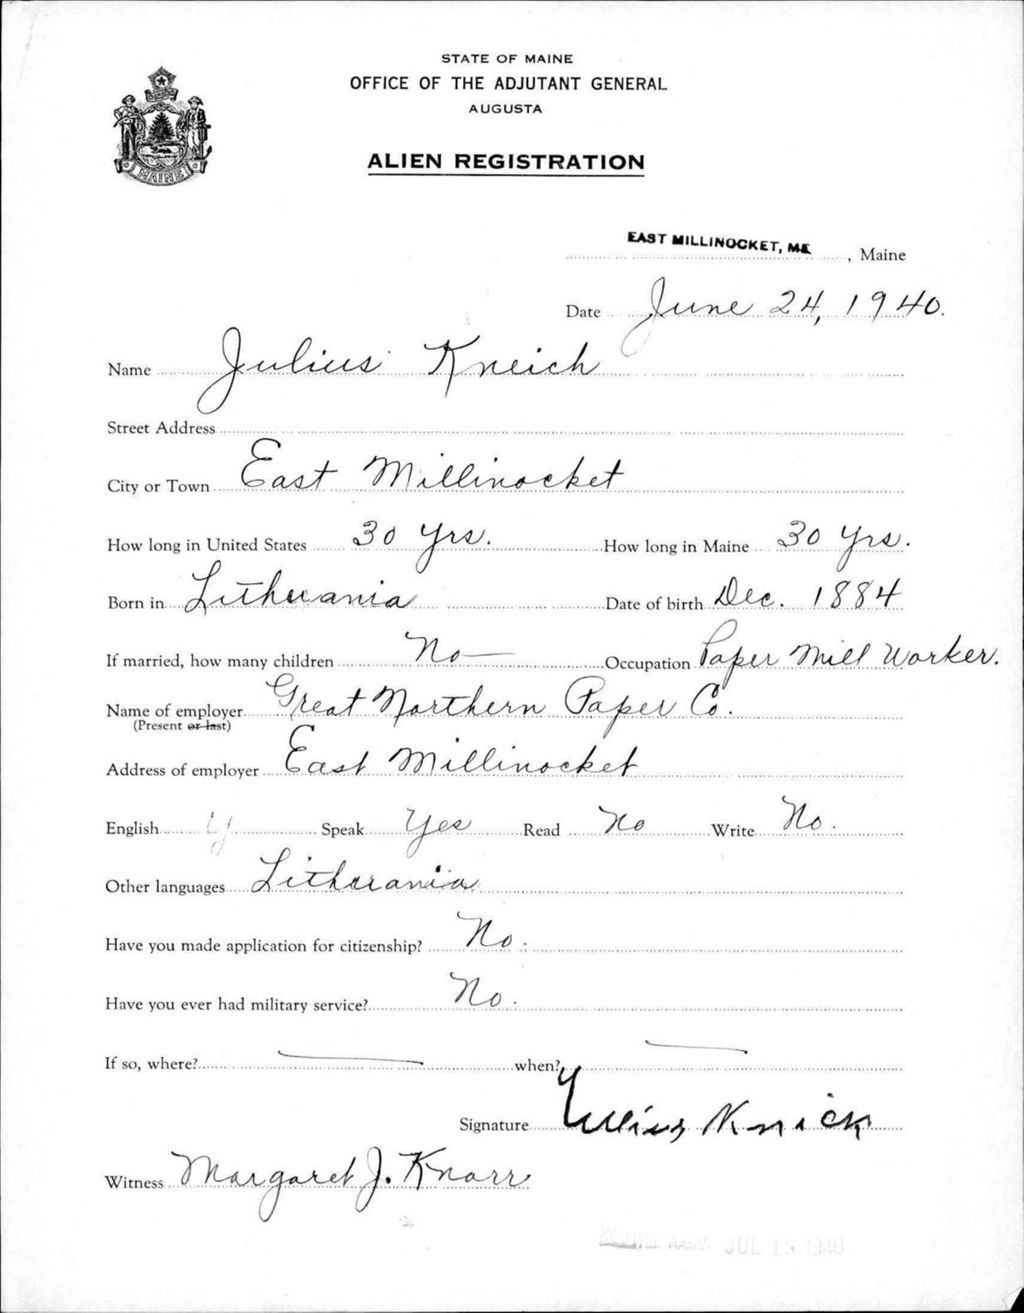 STATE OF MAINE
OFFICE OF THE ADJUTANT GENERAL
AUGUSTA
ALIEN REGISTRATION
MAINE
EAST MILLINOCKET, ME. , Maine
Date June 24, 1940.
Name Julius Kneich
Street Address
City or Town East Millinocket
How long in United States 30 Yrs. How long in Maine 30 Yrs.
Born in Lithuania Date of birth Dec. 1884
If married, how many children No — Occupation Paper Mill Worker.
Name of employer Great Northern Paper Co.
(Present or last)
Address of employer East Millinocket
English Speak Yes Read No Write No.
Other languages Lithurania
Have you made application for citizenship? No.
Have you ever had military service? No.
If so, where? — when? —
Signature Julius Knick
Witness Margaret J. Knarr
A.G.O. JUL 1940